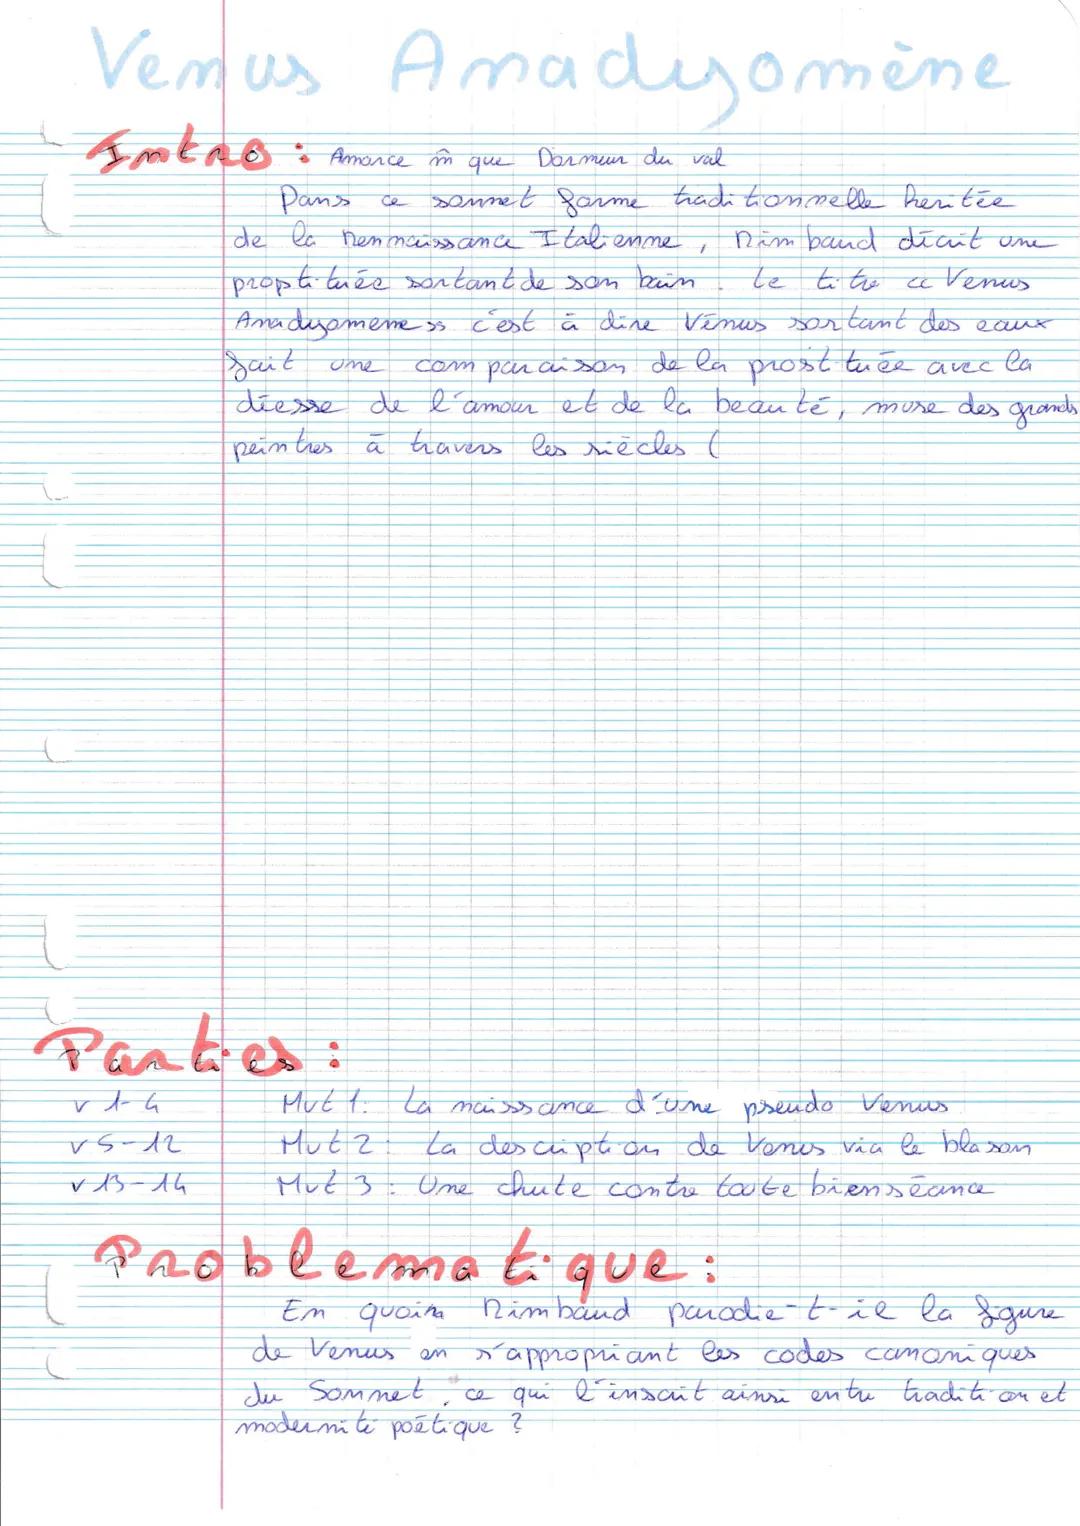 Venus Anadyomène
Intro : Amorce m̂ que Dormeur du val
Dans ce sonnet forme traditionnelle heritée
de la Rennaissance Italienne, Rimbaud décrit une
propstituée sortant de son bain. Le titre << Venus
Anadyomene >> c'est à dire Vénus sortant des eaux
fait une comparaison de la prostituée avec la
déesse de l'amour et de la beauté, muse des grands
peintres à travers les siècles (
Parties :
v 1-4 Mvt 1: La naissance d'une pseudo Venus
v 5-12 Mvt 2 : La description de Venus via le blason
v 13-14 Mvt 3 : Une chute contre toute bienséance
Problematique :
En quoi Rimbaud parodie-t-il la figure
de Venus en s'appropriant les codes canoniques
du Sonnet, ce qui l'inscrit ainsi entre tradition et
modernité poétique ?